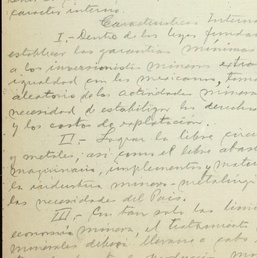 caracter interno.
Características Internas
I.- Dentro de las leyes funda
establecer las garantías mínimas
a los inversionistas mineros extra
igualdad con los mexicanos, toma
aleatorio de las actividades minera
necesidad de estabilizar los derechos
y los costos de explotación.
II.- Lograr la libre circu
y metales, así como el libre abas
maquinaria, implementos y mater
la industria minero-metalúrg
las necesidades del País.
III.- En tan solo las
economía minera, el tratamiento
minerales deberá llevarse a cabo